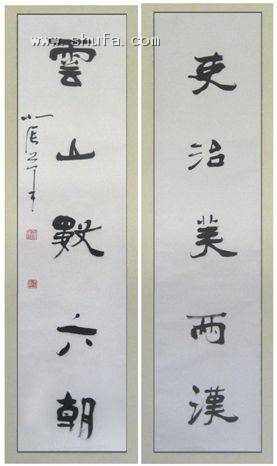 吏治美兩漢
雲山數六朝
www.shufa.com